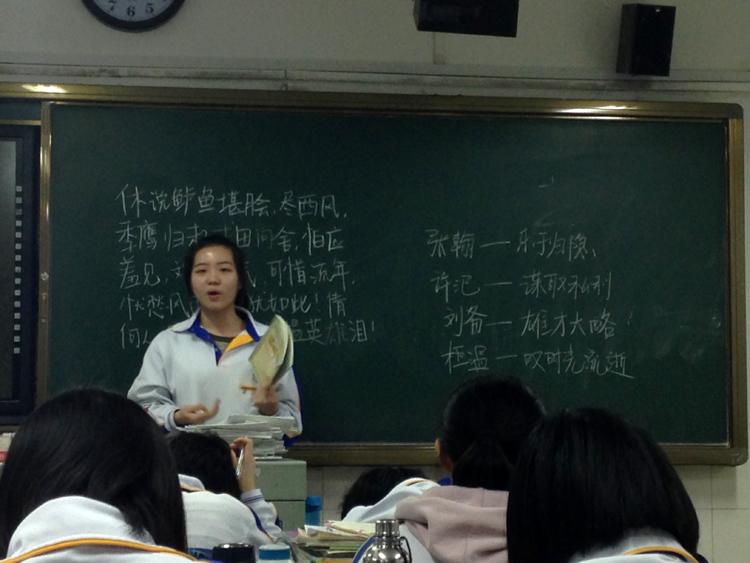 休说鲈鱼堪脍,尽西风,
季鹰归 田问舍,怕应
羞见, 可惜流年,
忧愁风 犹如此!倩
何人 揾英雄泪!
张翰—归隐
许汜—谋取私利
刘备—雄才大略
桓温—叹时光流逝